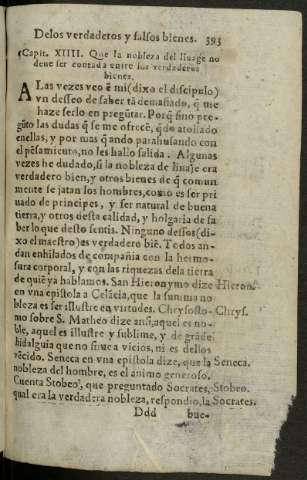 Delos verdaderos y falsos bienes. 393
Capit. XIIII. Que la nobleza del linage no
deue ser contada entre los verdaderos
bienes.
A Las vezes veo ē mi (dixo el discipulo)
vn desseo de saber tā demasiado, q̄ me
haze serlo en pregūtar. Porq̄ sino pre-
gūto las dudas q̄ se me ofrecē, q̄do atollado
enellas, y por mas q̄ ando parahusando con
el pēsamiēto, no les hallo salida. Algunas
vezes he dudado, si la nobleza de linaje era
verdadero bien, y otros bienes de q̄ comun
mente se jatan los hombres, como es ser pri
uado de principes, y ser natural de buena
tierra, y otros desta calidad, y holgaria de sa
ber lo que desto sentis. Ninguno dessos (di-
xo el maestro) es verdadero biē. Todos an-
dan enhilados de compañia con la hermo-
sura corporal, y con las riquezas dela tierra
de quiē ya hablamos. San Hieronymo dize Hieron.
en vna epistola a Celācia, que la summa no
bleza es ser illustre en virtudes. Chrysosto- Chrys.
mo sobre S. Matheo dize ansi, aquel es no-
ble, aquel es illustre y sublime, y de grāde
hidalguia que no sirue a vicios, ni es dellos
vēcido. Seneca en vna epistola dize, que la Seneca.
nobleza del hombre, es el animo generoso.
Cuenta Stobeo, que preguntado Socrates, Stobeo.
qual era la verdadera nobleza, respondio, la Socrates.
Ddd bue-